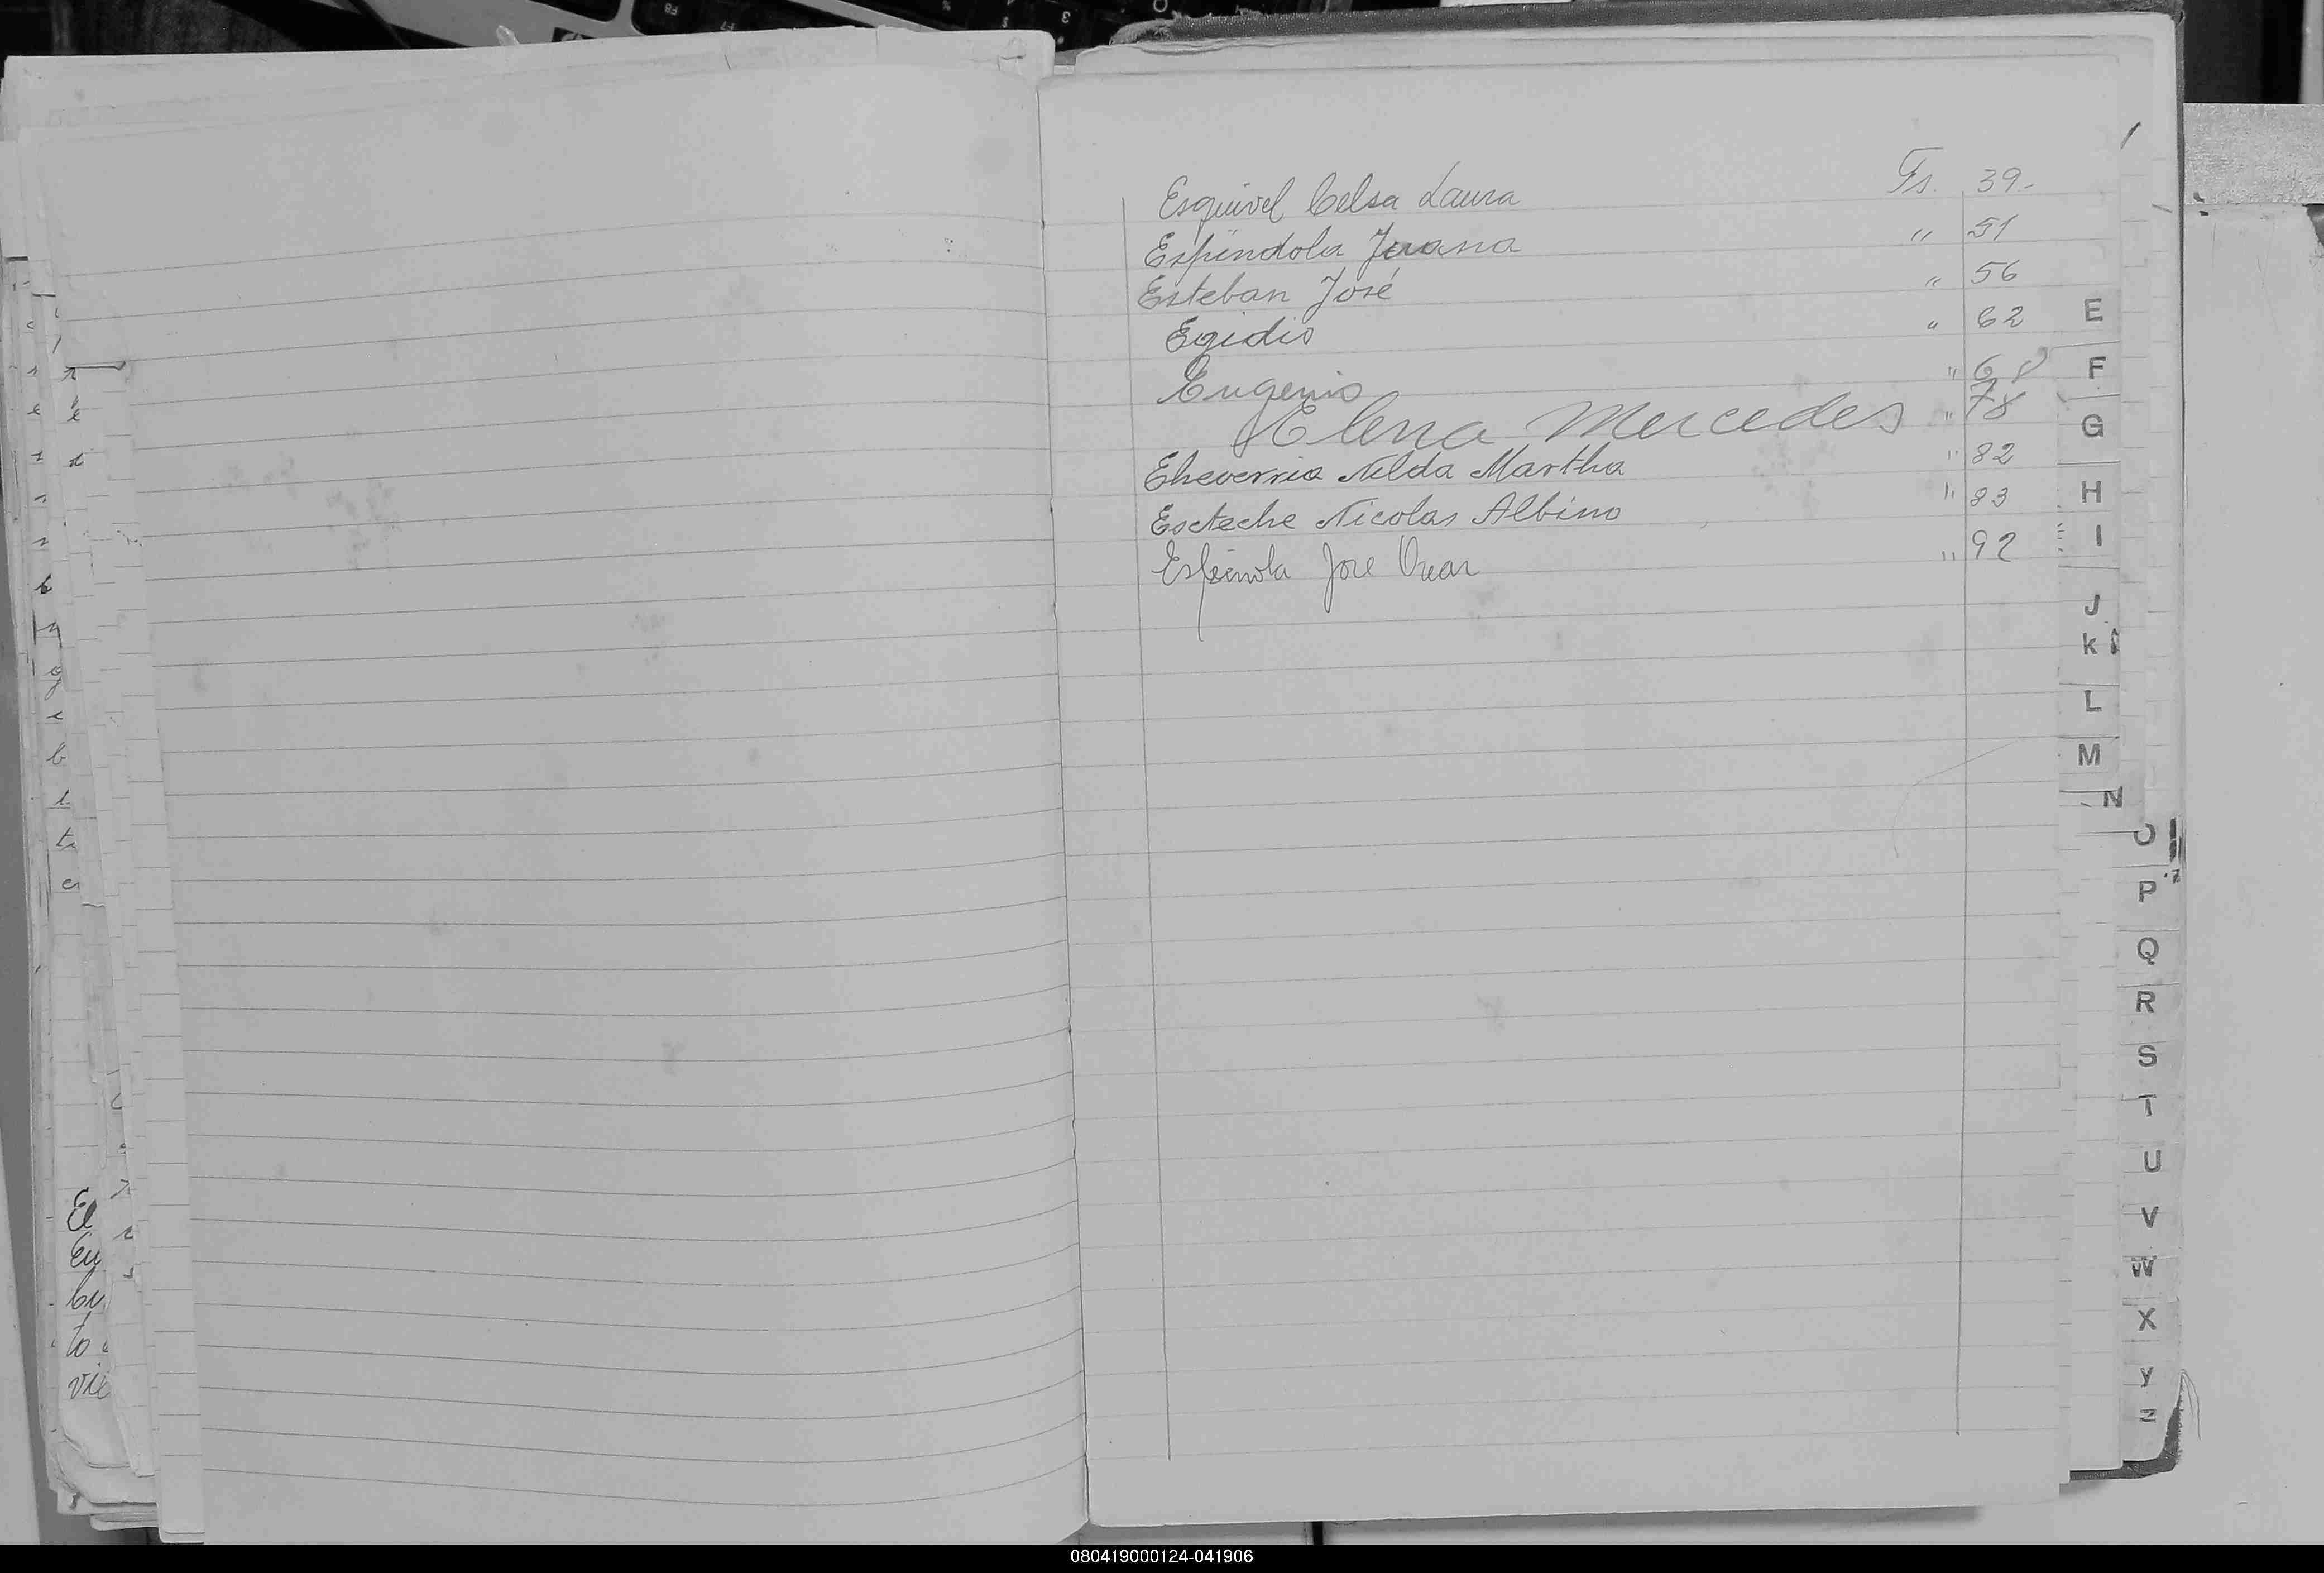 Esquivel Celsa Laura Fs. 39.
Espíndola Juana " 51
Esteban José " 56
Egidio " 62
Eugenio " 68
Elena Mercedes " 78
Eheverria Nelda Martha " 82
Escteche Nicolas Albino " 83
Espínola Jose Oscar " 92
E
F
G
H
I
J
K
L
M
N
O
P
Q
R
S
T
U
V
W
X
Y
Z
El
Eu
bu
to
vie
080419000124-041906